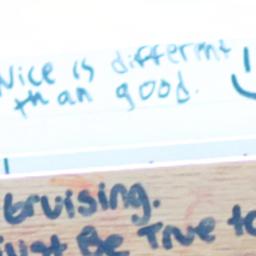 Nice is different
than good.
bruising.
Just Be True to